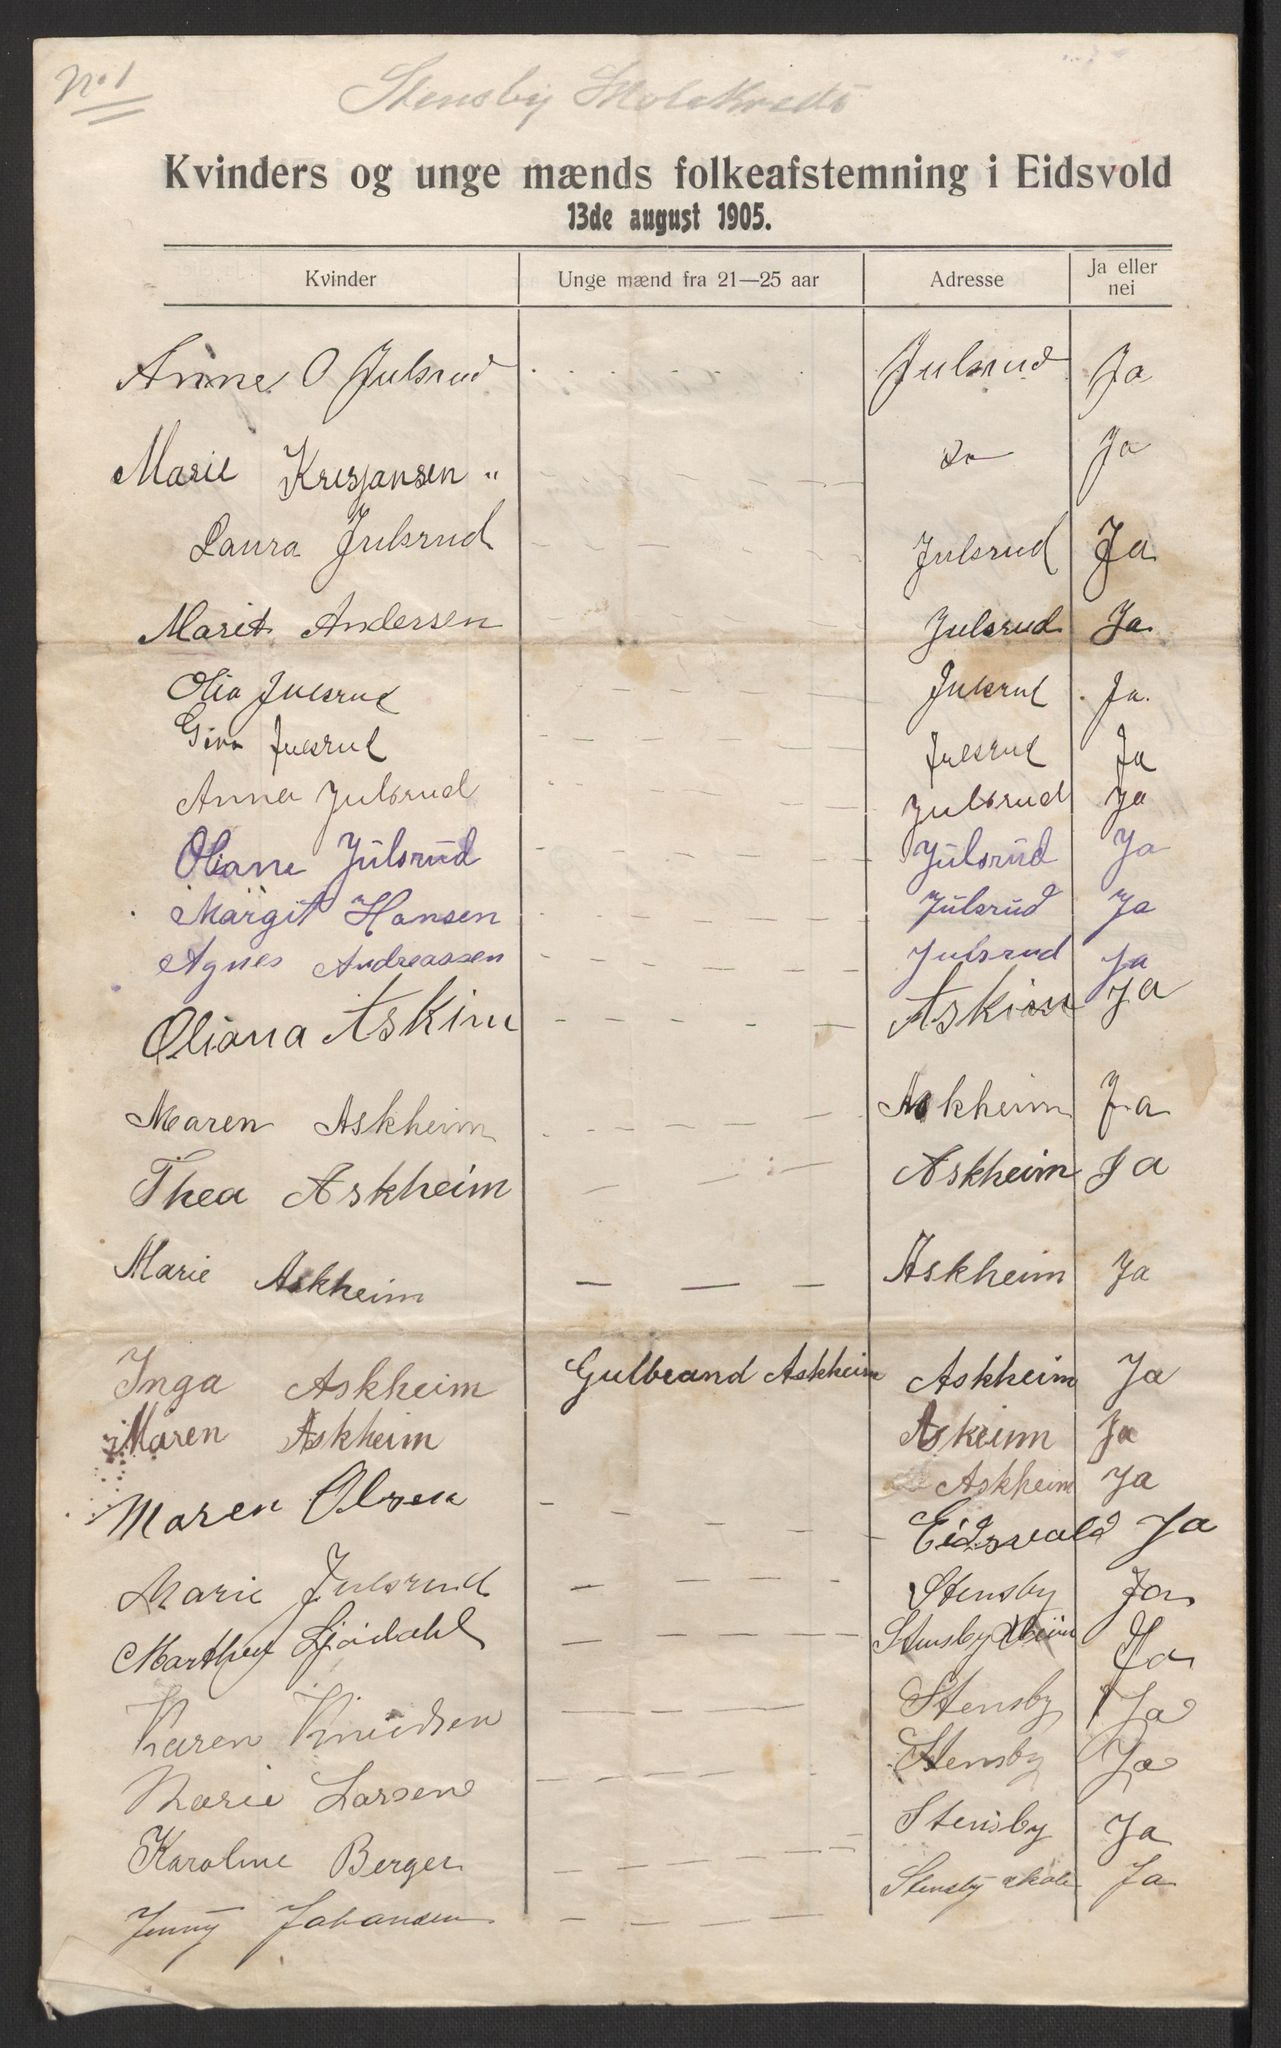 No 1
Stensby Skolekreds
Kvinders og unge mænds folkeafstemning i Eidsvold
13de august 1905.
Kvinder Unge mænd fra 21—25 aar Adresse Ja eller nei
Anne O Julsrud Julsrud Ja
Marie Kresjansen " do Ja
Laura Julsrud Julsrud Ja
Marit Andersen Julsrud Ja
Olia Julsrud Julsrud Ja.
Gina Julsrud Julsrud Ja
Anna Julsrud Julsrud Ja
Oliane Julsrud Julsrud Ja
Margit Hansen Julsrud Ja
Agnes Andreassen Julsrud Ja
Oliana Askim Askim Ja
Maren Askheim Askheim Ja
Thea Askheim Askheim Ja
Marie Askheim Askheim Ja
Inga Askheim Gulbrand Askheim Askheim Ja
Maren Askheim Askeim Ja
Askheim Ja
Maren Olsen Eidsvold Ja
Marie Julsrud Stensby Ja
Marthe Sjødahl Stensby Ja
Karen Knudsen Stensby Ja
Marie Larsen Stensby Ja
Karoline Berger Stensby Ja
Jenny Johansen Stensby skole Ja